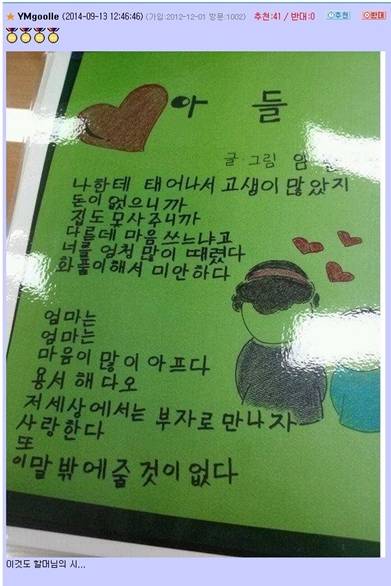 ★ YMgoolle (2014-09-13 12:46:46) (가입:2012-12-01 방문:1002) 추천:41 / 반대:0 추천 반대
아 들
글 그림
나한테 태어나서 고생이 많았지
돈이 없으니까
집도 못사주니까
다른데 마음 쓰느냐고
너를 엄청 많이 때렸다
화풀이해서 미안하다
엄마는
엄마는
마음이 많이 아프다
용서 해 다오
저 세상에서는 부자로 만나자
사랑한다
또
이말 밖에 줄 것이 없다
이것도 할머님의 시...